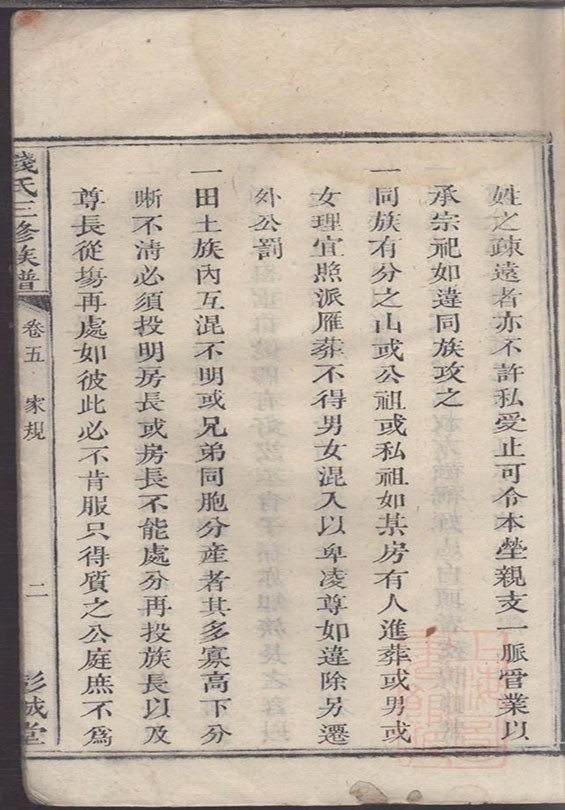 姓之疎遠者亦不許私受止可令本塋親支一脈管業以
承宗祀如違同族攻之
一同族有分之山或公祖或私祖如某房有人進葬或男或
女理宜照派雁葬不得男女混入以卑凌尊如違除另遷
外公罰
一田土族內互混不明或兄弟同胞分產者其多寡高下分
晰不清必須投明房長或房長不能處分再投族長以及
尊長從塲再處如彼此必不肯服只得質之公庭庶不為
錢氏三修族譜
卷五
家規
二
彭城堂